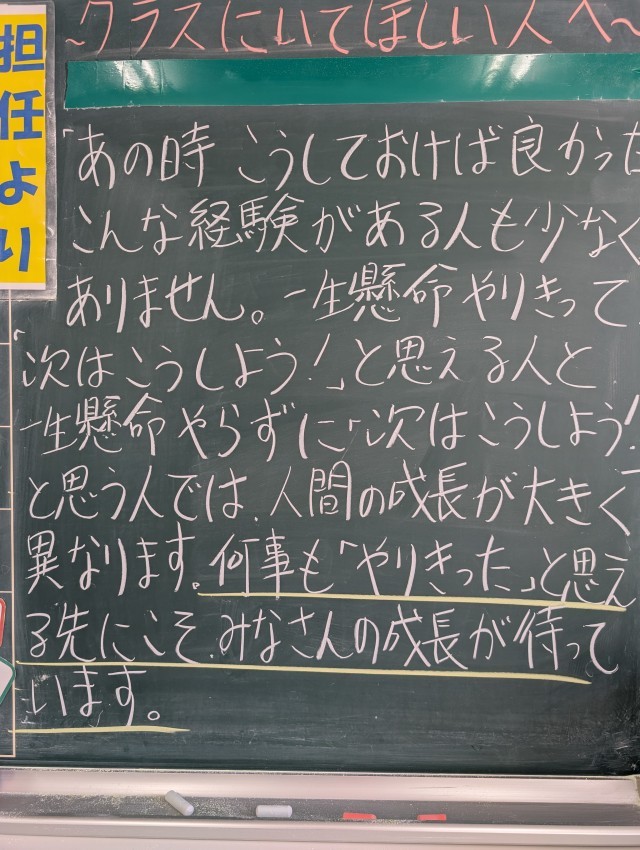 担任より
~クラスにいてほしい人へ~
「あの時 こうしておけば良かった
こんな経験がある人も少なく
ありません。一生懸命やりきって
「次はこうしよう!」と思える人と
一生懸命やらずに「次はこうしよう!
と思う人では、人間の成長が大きく
異なります。何事も「やりきった」と思え
る先にこそ、みなさんの成長が待って
います。